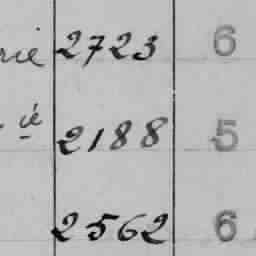 rie 2723 6
ié 2188 5
2562 6